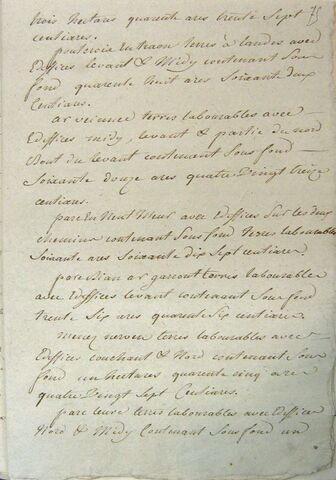 75
trois hectares quarente ares trente Sept
centiares.
terres à landes avec
Edifices levant & Midy contenant Sous
fond quarente huit ares Soixante deux
Centiares.
terres labourables avec
Edifices midy, levant & partie du nord
Bout du levant contenant Sous fond
Soixante douze ares quatre Vingt treize
centiares.
parc avec Edifices Sur les deux
chemins contenant Sous fond terres labourables
Soixante ares Soixante dix Sept centiares.
parc Bian ar garront terres labourables
avec Edifices levant contenant Sous fond
trente Six ares quarente Six centiares.
terres labourables avec
Edifices couchant & Nord contenant Sous
fond un hectares quarente cinq ares
quatre Vingt Sept Centiares.
parc terres labourables avec Edifices
Nord & Midy Contenant Sous fond un